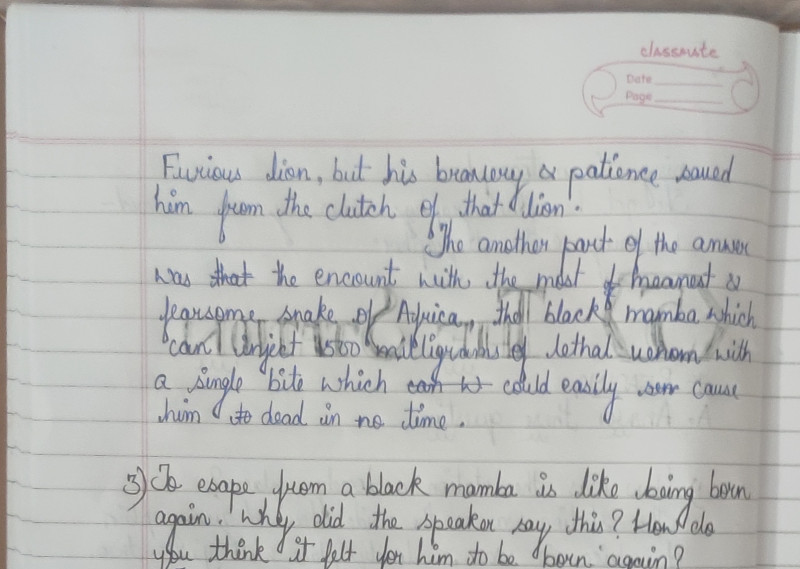 classmate
Date
Page
Furious lion, but his bravery & patience saved
him from the clutch of that lion.
The another part of the answer
was that the encount with the most & meanest &
fearsome snake of Africa, the black mamba which
can inject 1500 milligrams of lethal venom with
a single bite which can w could easily ser cause
him to dead in no time.
3) To esape from a black mamba is like being born
again. Why did the speaker say this? How do
you think it felt for him to be born again?